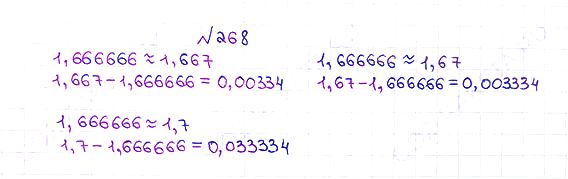 №268
1,666666 ≈ 1,667
1,667 - 1,666666 = 0,00334
1,666666 ≈ 1,67
1,67 - 1,666666 = 0,003334
1,666666 ≈ 1,7
1,7 - 1,666666 = 0,033334